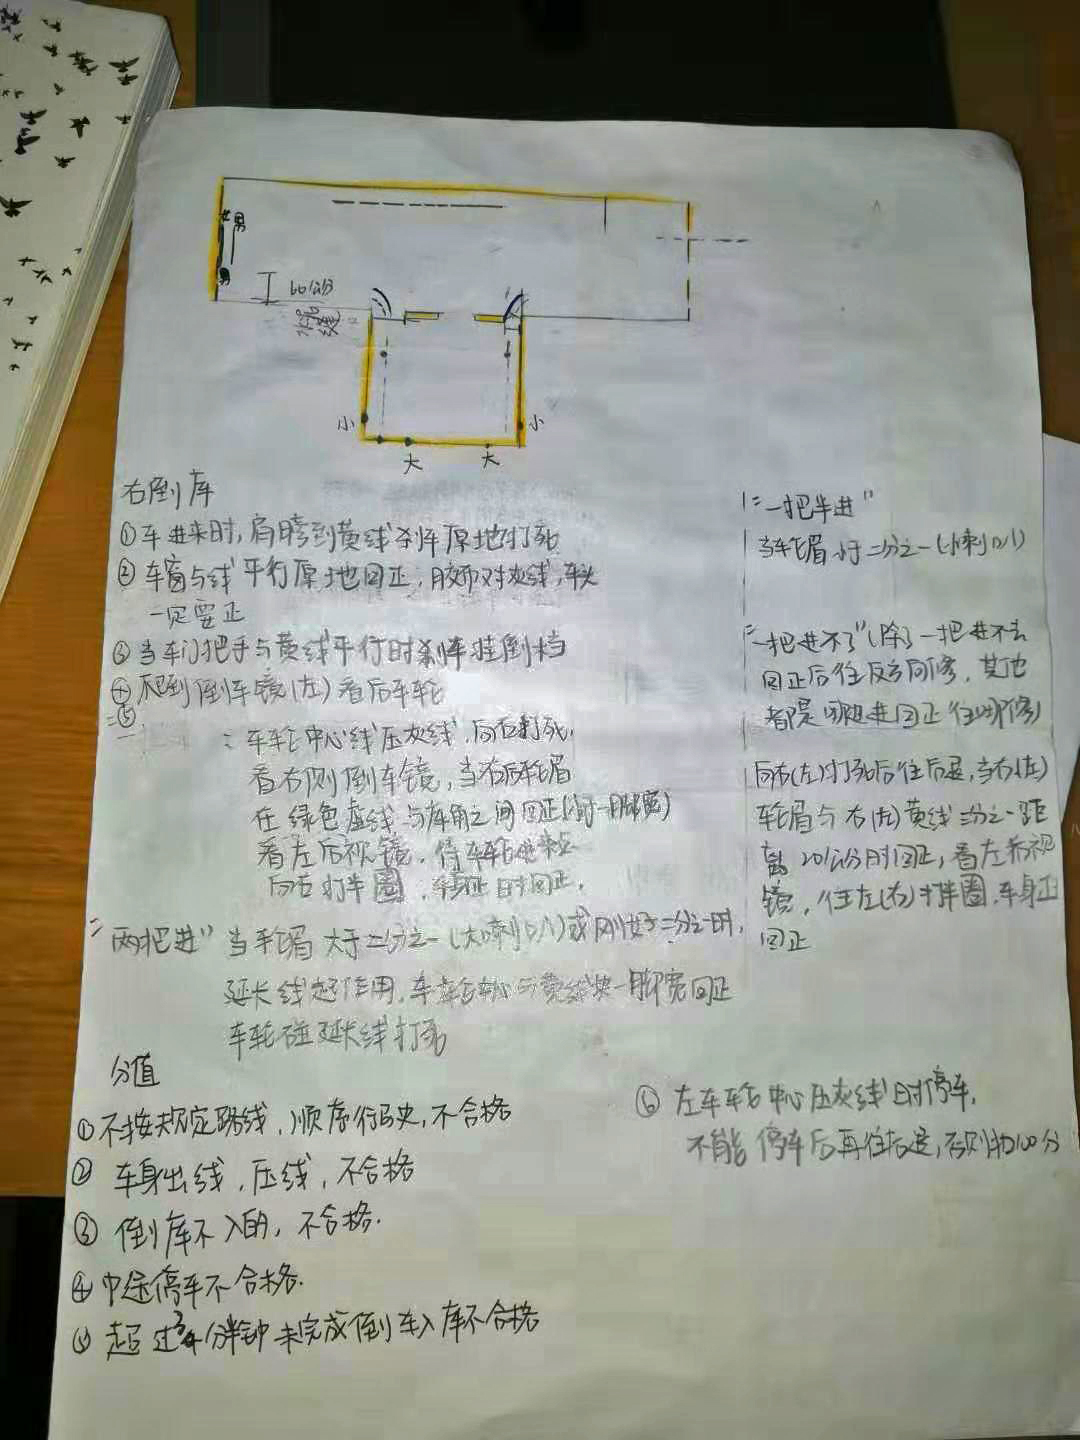 男
男
60公分
小
小
大
大
右倒库
①车进来时,肩膀到黄线刹车原地打死
②车窗与线平行原地回正,胶布对灰线,车头
一定要正
③当车门把手与黄线平行时刹车挂倒档
④ 倒车镜(左)看后车轮
⑤
车轮中心线压灰线,向右打死.
看右侧倒车镜,当右后轮眉
在绿色虚线与库角之间回正(对一脚宽)
看左后视镜,待车轮
向右打半圈,车身正时回正.
"两把进"当轮眉大于二分之一(大喇叭)或刚好二分之一时,
延长线起作用,车轮中心与黄线 一脚宽回正
车轮碰延长线打死
"一把半进"
当车轮眉小于二分之一(小喇叭)
"一把进不了"(除了一把进不去
回正后往反方向修,其他
都是 进回正往哪修)
向右(左)打死后往后退,当右(左)
轮眉与右(左)黄线 分之一距
离20公分时回正,看左后视
镜,往左(右)打半圈,车身正
回正
分值
①不按规定路线,顺序行驶,不合格
②车身出线,压线,不合格
③倒库不入的,不合格.
④中途停车不合格.
⑤超过 分半钟未完成倒车入库不合格
⑥左车轮中心压灰线时停车,
不能停车后再往后退,否则扣100分